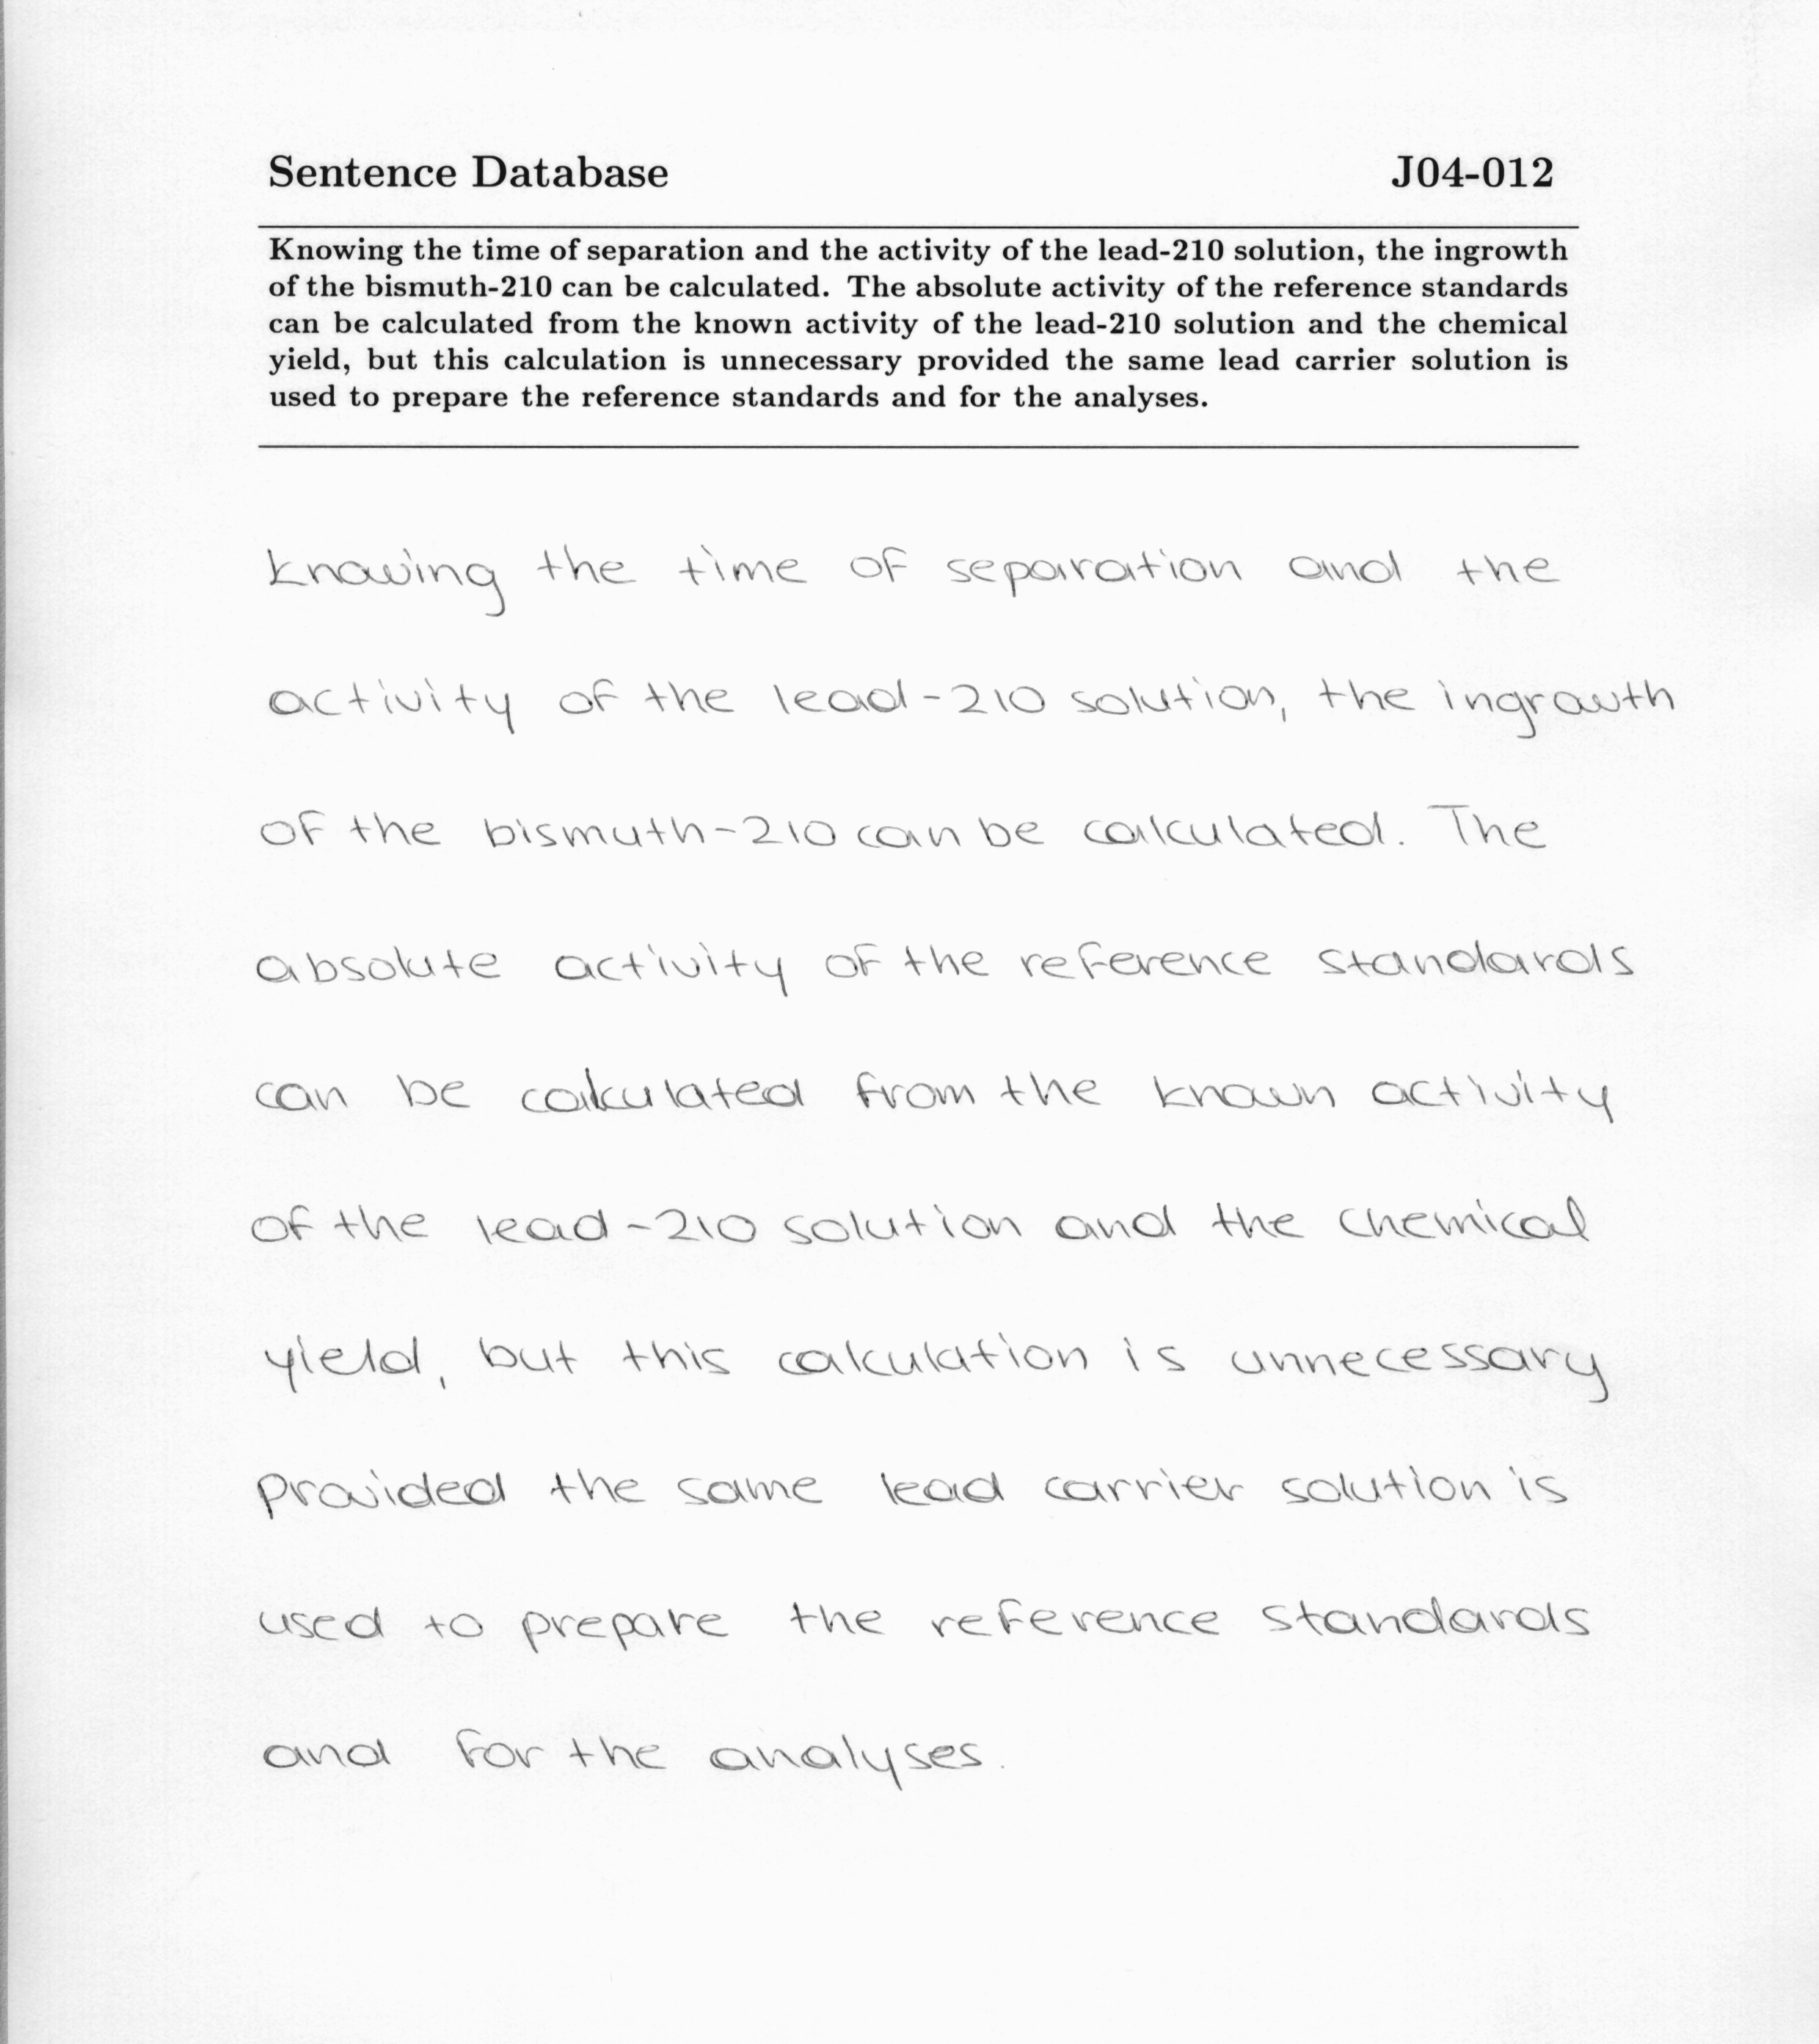 Sentence Database J04-012
Knowing the time of separation and the activity of the lead-210 solution, the ingrowth
of the bismuth-210 can be calculated. The absolute activity of the reference standards
can be calculated from the known activity of the lead-210 solution and the chemical
yield, but this calculation is unnecessary provided the same lead carrier solution is
used to prepare the reference standards and for the analyses.
Knowing the time of separation and the
activity of the lead-210 solution, the ingrowth
of the bismuth-210 can be calculated. The
absolute activity of the reference standards
can be calculated from the known activity
of the lead-210 solution and the chemical
yield, but this calculation is unnecessary
provided the same lead carrier solution is
used to prepare the reference standards
and for the analyses.